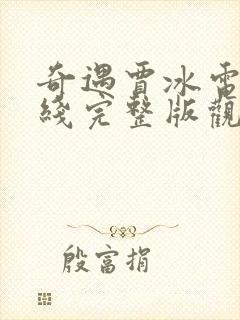 奇遇賈冰電
綫完整版觀
殷富捐